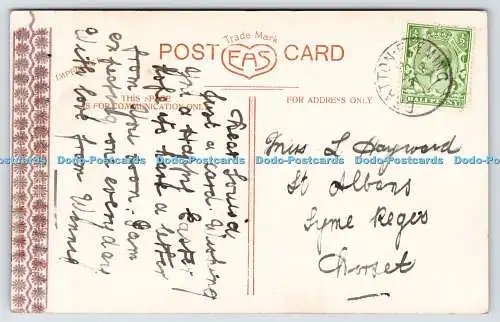 Trade Mark
POST EAS CARD
THIS SPACE
IS FOR COMMUNICATION ONLY.
FOR ADDRESS ONLY
HALFPENNY
Dear Louisa
Just a card wishing
you a Happy Easter
hope to have a letter
from you soon. I am
expecting one everyday
With love from Winnie
Miss L Hayward
St Albans
Lyme Regis
Dorset
Dodo-Postcards Dodo-Postcards Dodo-Postcards Dodo-Postcards Dodo-Postcards